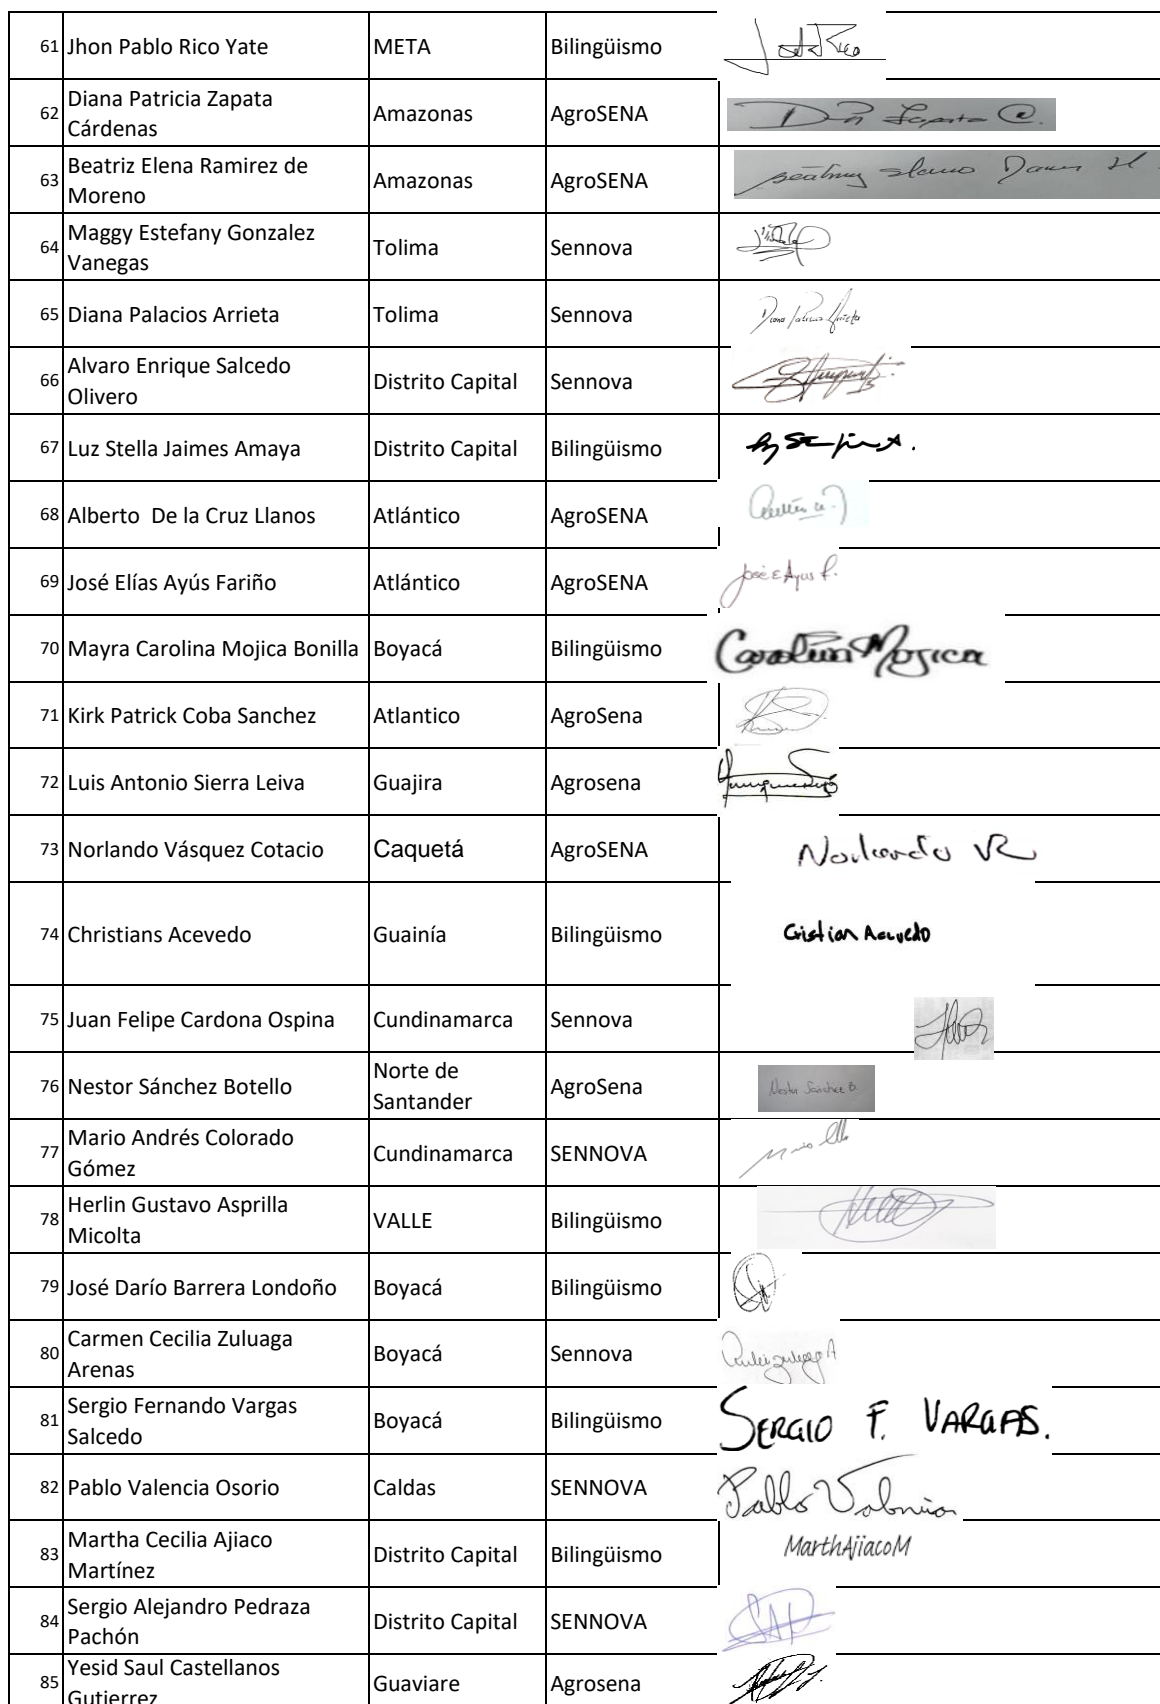 61 Jhon Pablo Rico Yate META Bilingüismo
Diana Patricia Zapata
62 Cárdenas Amazonas AgroSENA
Beatriz Elena Ramirez de
63 Moreno Amazonas AgroSENA
Maggy Estefany Gonzalez
64 Vanegas Tolima Sennova
65 Diana Palacios Arrieta Tolima Sennova Diana Palacios Arrieta
Alvaro Enrique Salcedo
66 Olivero Distrito Capital Sennova
67 Luz Stella Jaimes Amaya Distrito Capital Bilingüismo
68 Alberto  De la Cruz Llanos Atlántico AgroSENA
69 José Elías Ayús Fariño Atlántico AgroSENA José E Ayus f.
70 Mayra Carolina Mojica Bonilla Boyacá Bilingüismo Carolina Mojica
71 Kirk Patrick Coba Sanchez Atlantico AgroSena
72 Luis Antonio Sierra Leiva Guajira Agrosena
73 Norlando Vásquez Cotacio Caquetá AgroSENA Norlando V
74 Christians Acevedo Guainía Bilingüismo Cristian Acevedo
75 Juan Felipe Cardona Ospina Cundinamarca Sennova
76 Nestor Sánchez Botello Norte de Santander AgroSena Nestor Sánchez B.
Mario Andrés Colorado
77 Gómez Cundinamarca SENNOVA
Herlin Gustavo Asprilla
78 Micolta VALLE Bilingüismo
79 José Darío Barrera Londoño Boyacá Bilingüismo
Carmen Cecilia Zuluaga
80 Arenas Boyacá Sennova
Sergio Fernando Vargas
81 Salcedo Boyacá Bilingüismo SERGIO F. VARGAS.
82 Pablo Valencia Osorio Caldas SENNOVA Pablo Valencia
Martha Cecilia Ajiaco
83 Martínez Distrito Capital Bilingüismo MarthAjiacoM
Sergio Alejandro Pedraza
84 Pachón Distrito Capital SENNOVA SAP
Yesid Saul Castellanos
85 Gutierrez Guaviare Agrosena